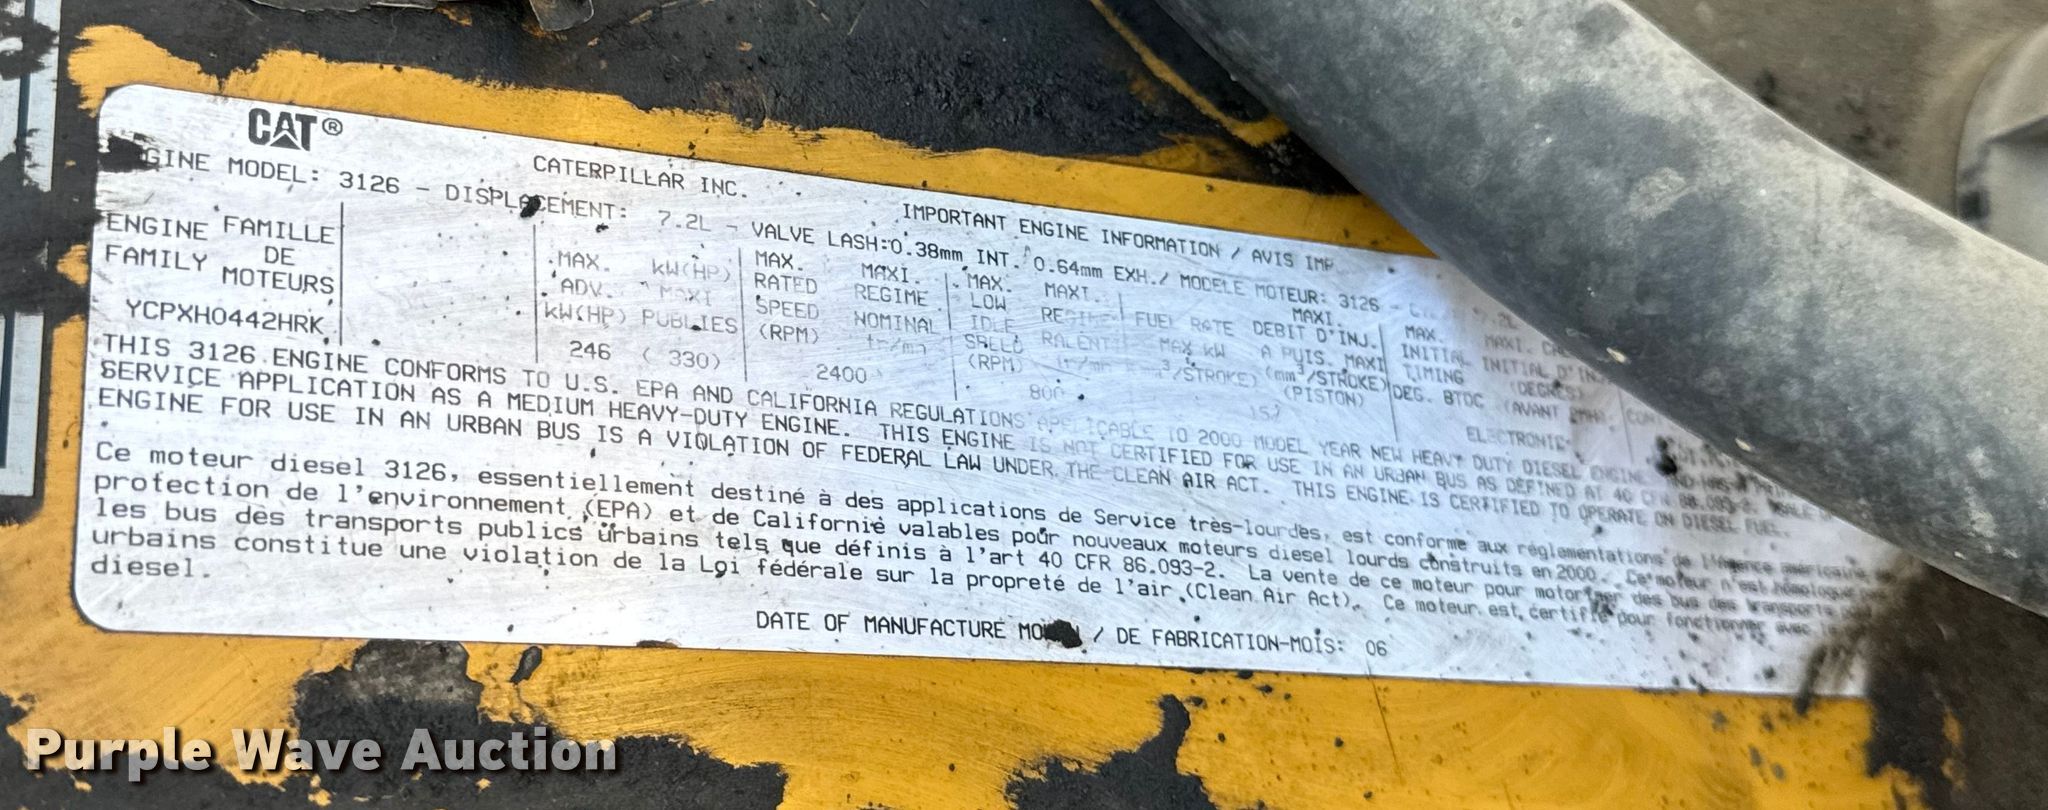 CAT®
CATERPILLAR INC.
IMPORTANT ENGINE INFORMATION / AVIS IMP
GINE MODEL: 3126 - DISPLACEMENT: 7.2L - VALVE LASH:0.38mm INT. 0.64mm EXH./ MODELE MOTEUR: 3126 - 7.2L
ENGINE FAMILLE
DE
FAMILY MOTEURS
YCPXH0442HRK
MAX. kW(HP)
ADV. MAXI
kW(HP) PUBLIES
246 ( 330)
MAX. MAXI.
RATED REGIME
SPEED NOMINAL
(RPM) tr/mn
2400
MAX. MAXI.
LOW REGIME
IDLE RALENTI
SPEED tr/mn
(RPM)
800
MAXI.
FUEL RATE DEBIT D'INJ.
MAX kW A PUIS. MAXI
(mm³/STROKE) (mm³/STROKE)
(PISTON)
157
MAX. MAXI.
INITIAL INITIAL D'INJ
TIMING (DEGRES)
DEG. BTDC (AVANT PMH)
ELECTRONIC
THIS 3126 ENGINE CONFORMS TO U.S. EPA AND CALIFORNIA REGULATIONS APPLICABLE TO 2000 MODEL YEAR NEW HEAVY DUTY DIESEL ENGINE AND HAS A PRIMARY
SERVICE APPLICATION AS A MEDIUM HEAVY-DUTY ENGINE. THIS ENGINE IS NOT CERTIFIED FOR USE IN AN URBAN BUS AS DEFINED AT 40 CFR 86.093-2. SALE OF
ENGINE FOR USE IN AN URBAN BUS IS A VIOLATION OF FEDERAL LAW UNDER THE CLEAN AIR ACT. THIS ENGINE IS CERTIFIED TO OPERATE ON DIESEL FUEL.
Ce moteur diesel 3126, essentiellement destiné à des applications de Service très-lourdes, est conforme aux réglementations de l'Agence américaine
protection de l'environnement (EPA) et de Californie valables pour nouveaux moteurs diesel lourds construits en 2000. Ce moteur n'est homologué
les bus des transports publics urbains tels que définis à l'art 40 CFR 86.093-2. La vente de ce moteur pour motoriser des bus des transports
urbains constitue une violation de la Loi fédérale sur la propreté de l'air (Clean Air Act). Ce moteur est certifié pour fonctionner avec
diesel.
DATE OF MANUFACTURE MO / DE FABRICATION-MOIS: 06
Purple Wave Auction